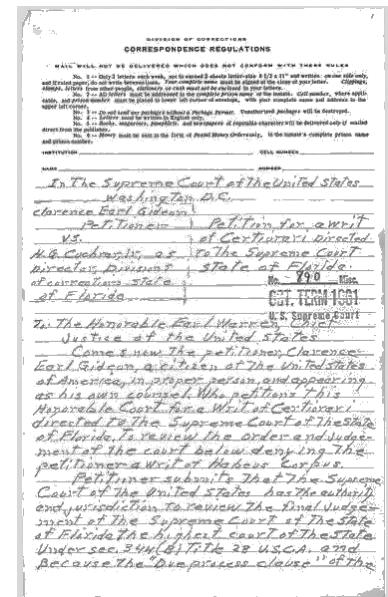 DIVISION OF CORRECTIONS
CORRESPONDENCE REGULATIONS
MAIL WILL NOT BE DELIVERED WHICH DOES NOT CONFORM WITH THESE RULES
No. 1 -- Only 2 letters each week, not to exceed 2 sheets letter-size 8 1/2 x 11" and written on one side only,
and if ruled paper, do not write between lines. Your complete name must be signed at the close of your letter. Clippings,
stamps, letters from other people, stationery or cash must not be enclosed in your letters.
No. 2 -- All letters must be addressed in the complete prison name of the inmate. Cell number, where applicable,
and prison number must be placed in lower left corner of envelope, with your complete name and address in the
upper left corner.
No. 3 -- Do not send any packages without a Package Permit. Unauthorized packages will be destroyed.
No. 4 -- Letters must be written in English only.
No. 5 -- Books, magazines, pamphlets, and newspapers of reputable character will be delivered only if mailed
direct from the publisher.
No. 6 -- Money must be sent in the form of Postal Money Orders only, in the inmate's complete prison name
and prison number.
INSTITUTION CELL NUMBER
NAME NUMBER
In The Supreme Court of The United States
Washington D.C.
Clarence Earl Gideon
Petitioner
vs.
H.G. Cochran, Jr., as
Director, Division
of corrections state
of Florida
Petition for a writ
of Certiorari Directed
to The Supreme Court
State of Florida.
No. 890 Misc.
OCT. TERM 1961
U. S. Supreme Court
To: The Honorable Earl Warren, Chief
Justice of the United States
Comes now the petitioner, Clarence
Earl Gideon, a citizen of The United states
of America, in proper person, and appearing
as his own counsel. Who petitions this
Honorable Court for a Writ of Certiorari
directed to The Supreme Court of The State
of Florida, To review the order and Judge-
ment of the court below denying The
petitioner a writ of Habeus Corpus.
Petitioner submits That The Supreme
Court of The United States has the authority
and jurisdiction to review the final Judge-
ment of The Supreme Court of The State
of Florida the highest court of The State
Under sec. 344(B) Title 28 U.S.C.A. and
Because the "Due process clause" of the